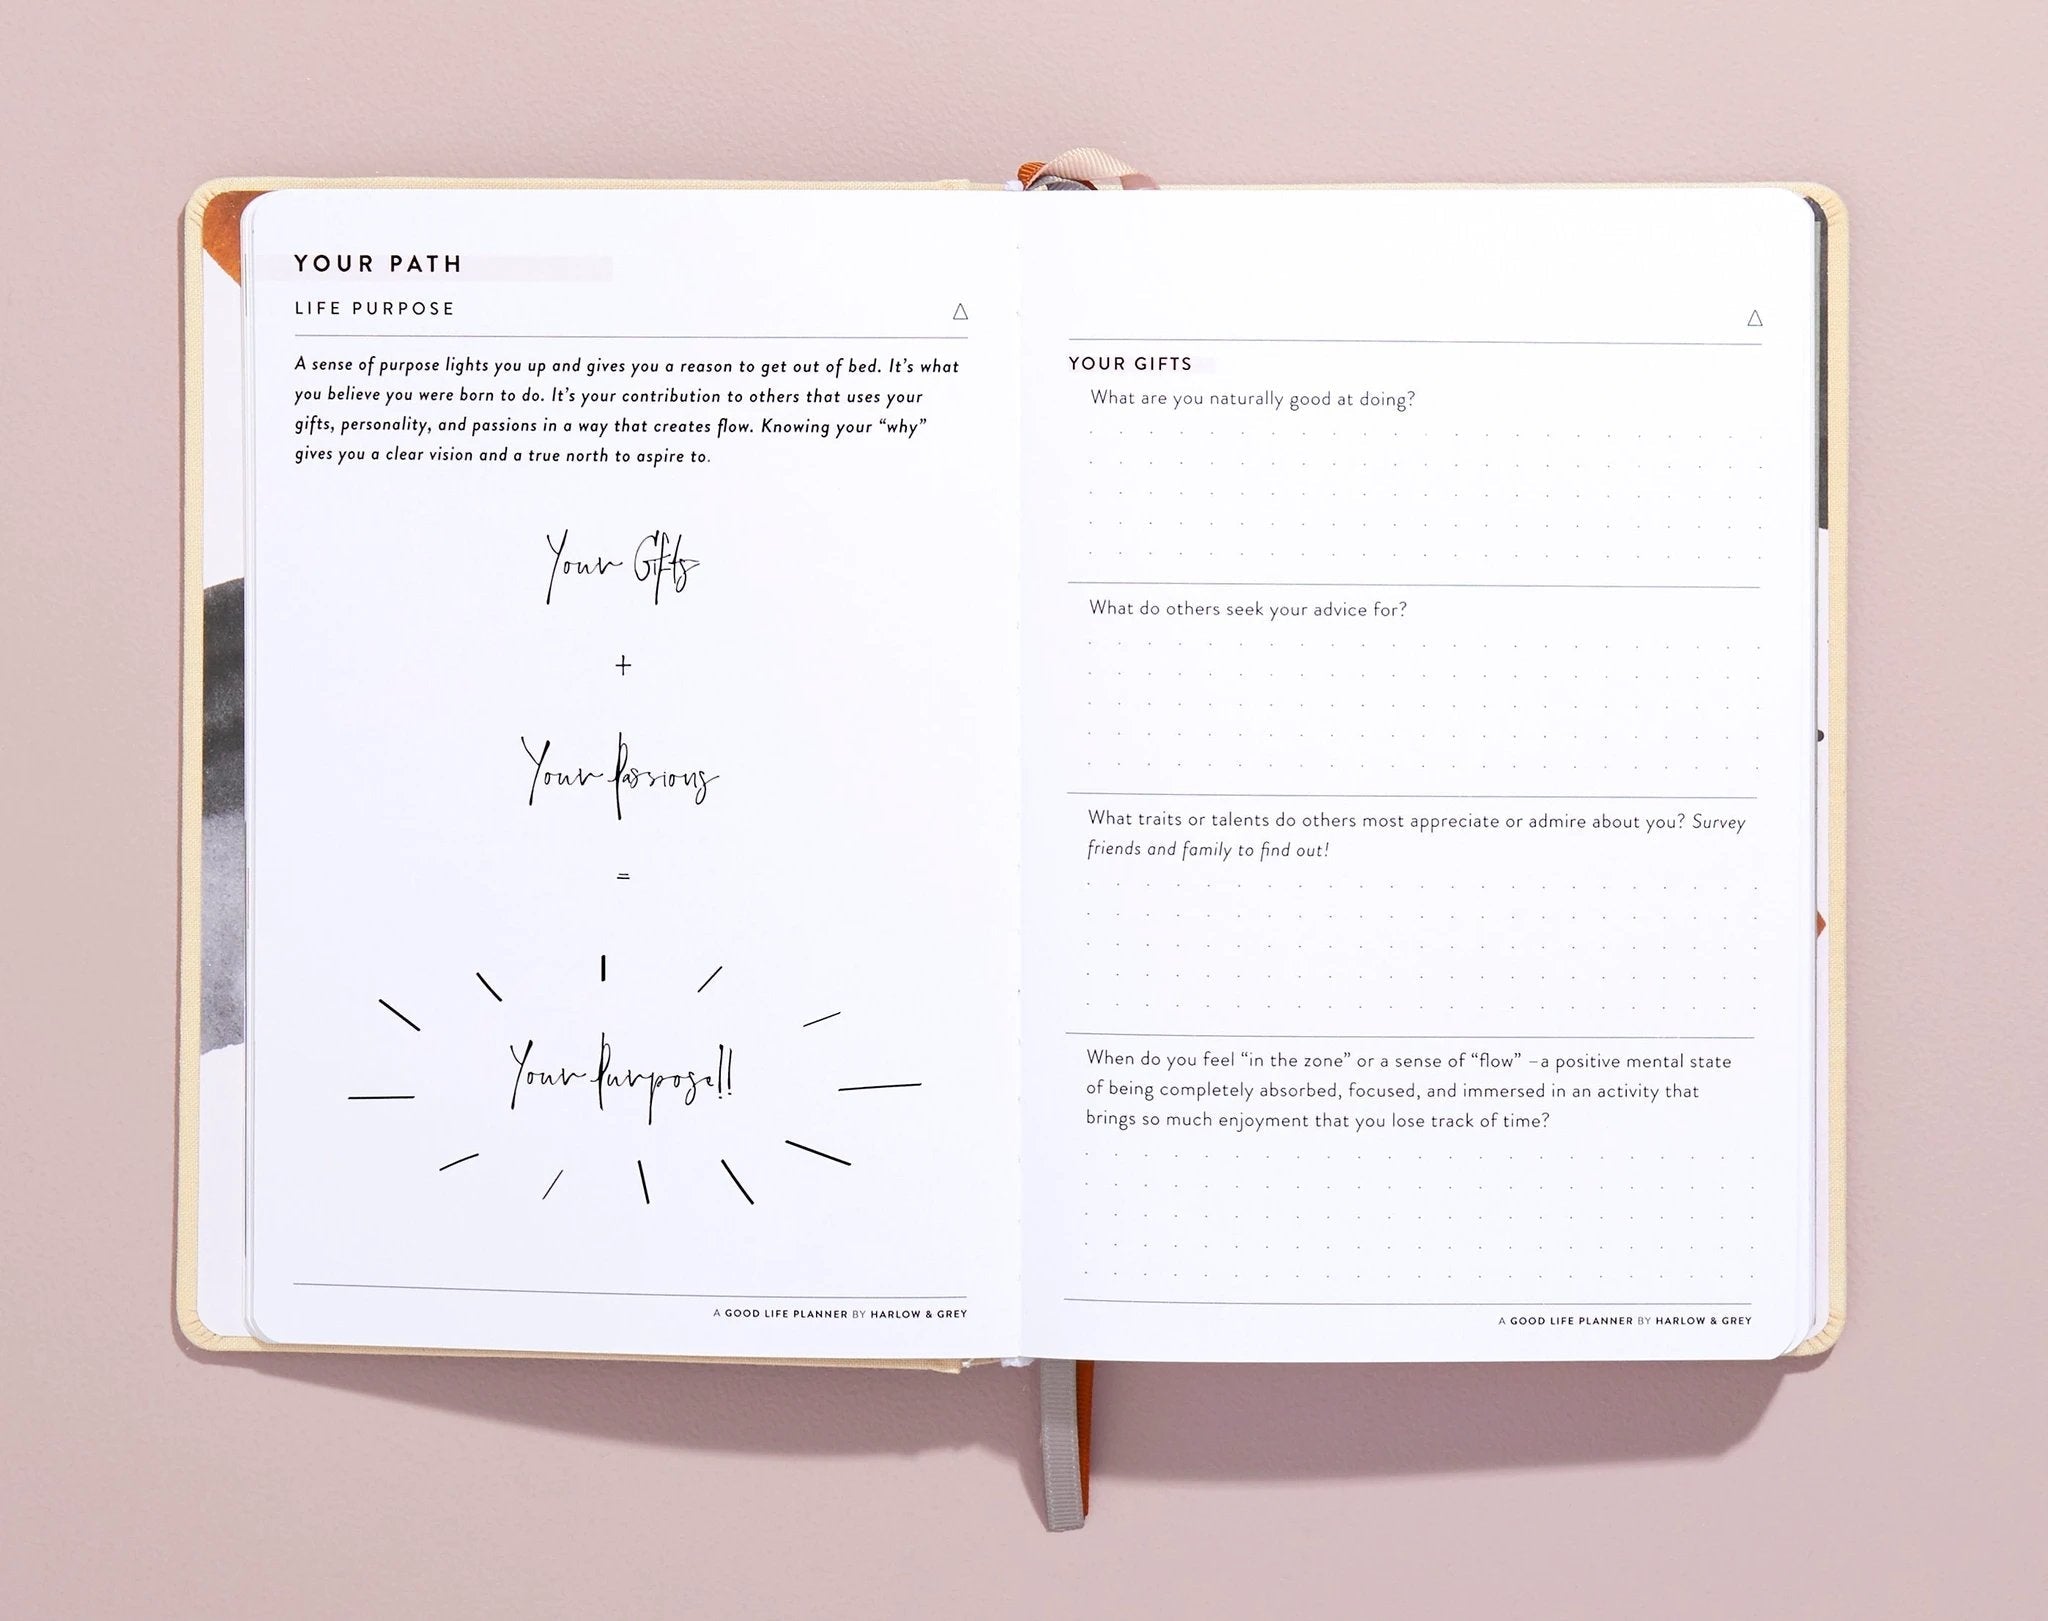 YOUR PATH
LIFE PURPOSE
A sense of purpose lights you up and gives you a reason to get out of bed. It's what
you believe you were born to do. It's your contribution to others that uses your
gifts, personality, and passions in a way that creates flow. Knowing your “why”
gives you a clear vision and a true north to aspire to.
Your Gifts
+
Your Passions
=
Your Purpose!!
A GOOD LIFE PLANNER BY HARLOW & GREY
YOUR GIFTS
What are you naturally good at doing?
What do others seek your advice for?
What traits or talents do others most appreciate or admire about you? Survey
friends and family to find out!
When do you feel “in the zone” or a sense of “flow” –a positive mental state
of being completely absorbed, focused, and immersed in an activity that
brings so much enjoyment that you lose track of time?
A GOOD LIFE PLANNER BY HARLOW & GREY